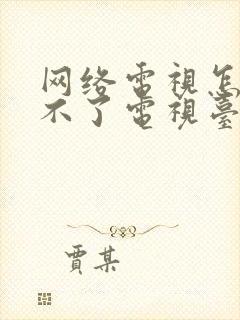 网络電視怎
不了電視臺
賈某